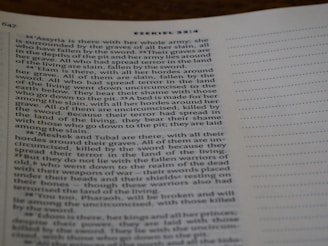 647
EZEKIEL 32:4
22 "Assyria is there with her whole army; she
is surrounded by the graves of all her slain, all
who have fallen by the sword. 23 Their graves are
in the depths of the pit and her army lies around
her grave. All who had spread terror in the land
of the living are slain, fallen by the sword.
24 "Elam is there, with all her hordes around
her grave. All of them are slain, fallen by the
sword. All who had spread terror in the land
of the living went down uncircumcised to the
earth below. They bear their shame with those
who go down to the pit. 25 A bed is made for her
among the slain, with all her hordes around her
grave. All of them are uncircumcised, killed by
the sword. Because their terror had spread in
the land of the living, they bear their shame
with those who go down to the pit; they are laid
among the slain.
26 "Meshek and Tubal are there, with all their
hordes around their graves. All of them are un-
circumcised, killed by the sword because they
spread their terror in the land of the living.
27 But they do not lie with the fallen warriors of
old, who went down to the realm of the dead
with their weapons of war — their swords placed
under their heads and their shields resting on
their bones — though these warriors also had
terrorized the land of the living.
28 "You too, Pharaoh, will be broken and will
lie among the uncircumcised, with those killed
by the sword.
29 "Edom is there, her kings and all her princes;
despite their power, they are laid with those
killed by the sword. They lie with the uncircum-
cised, with those who go down to the pit.